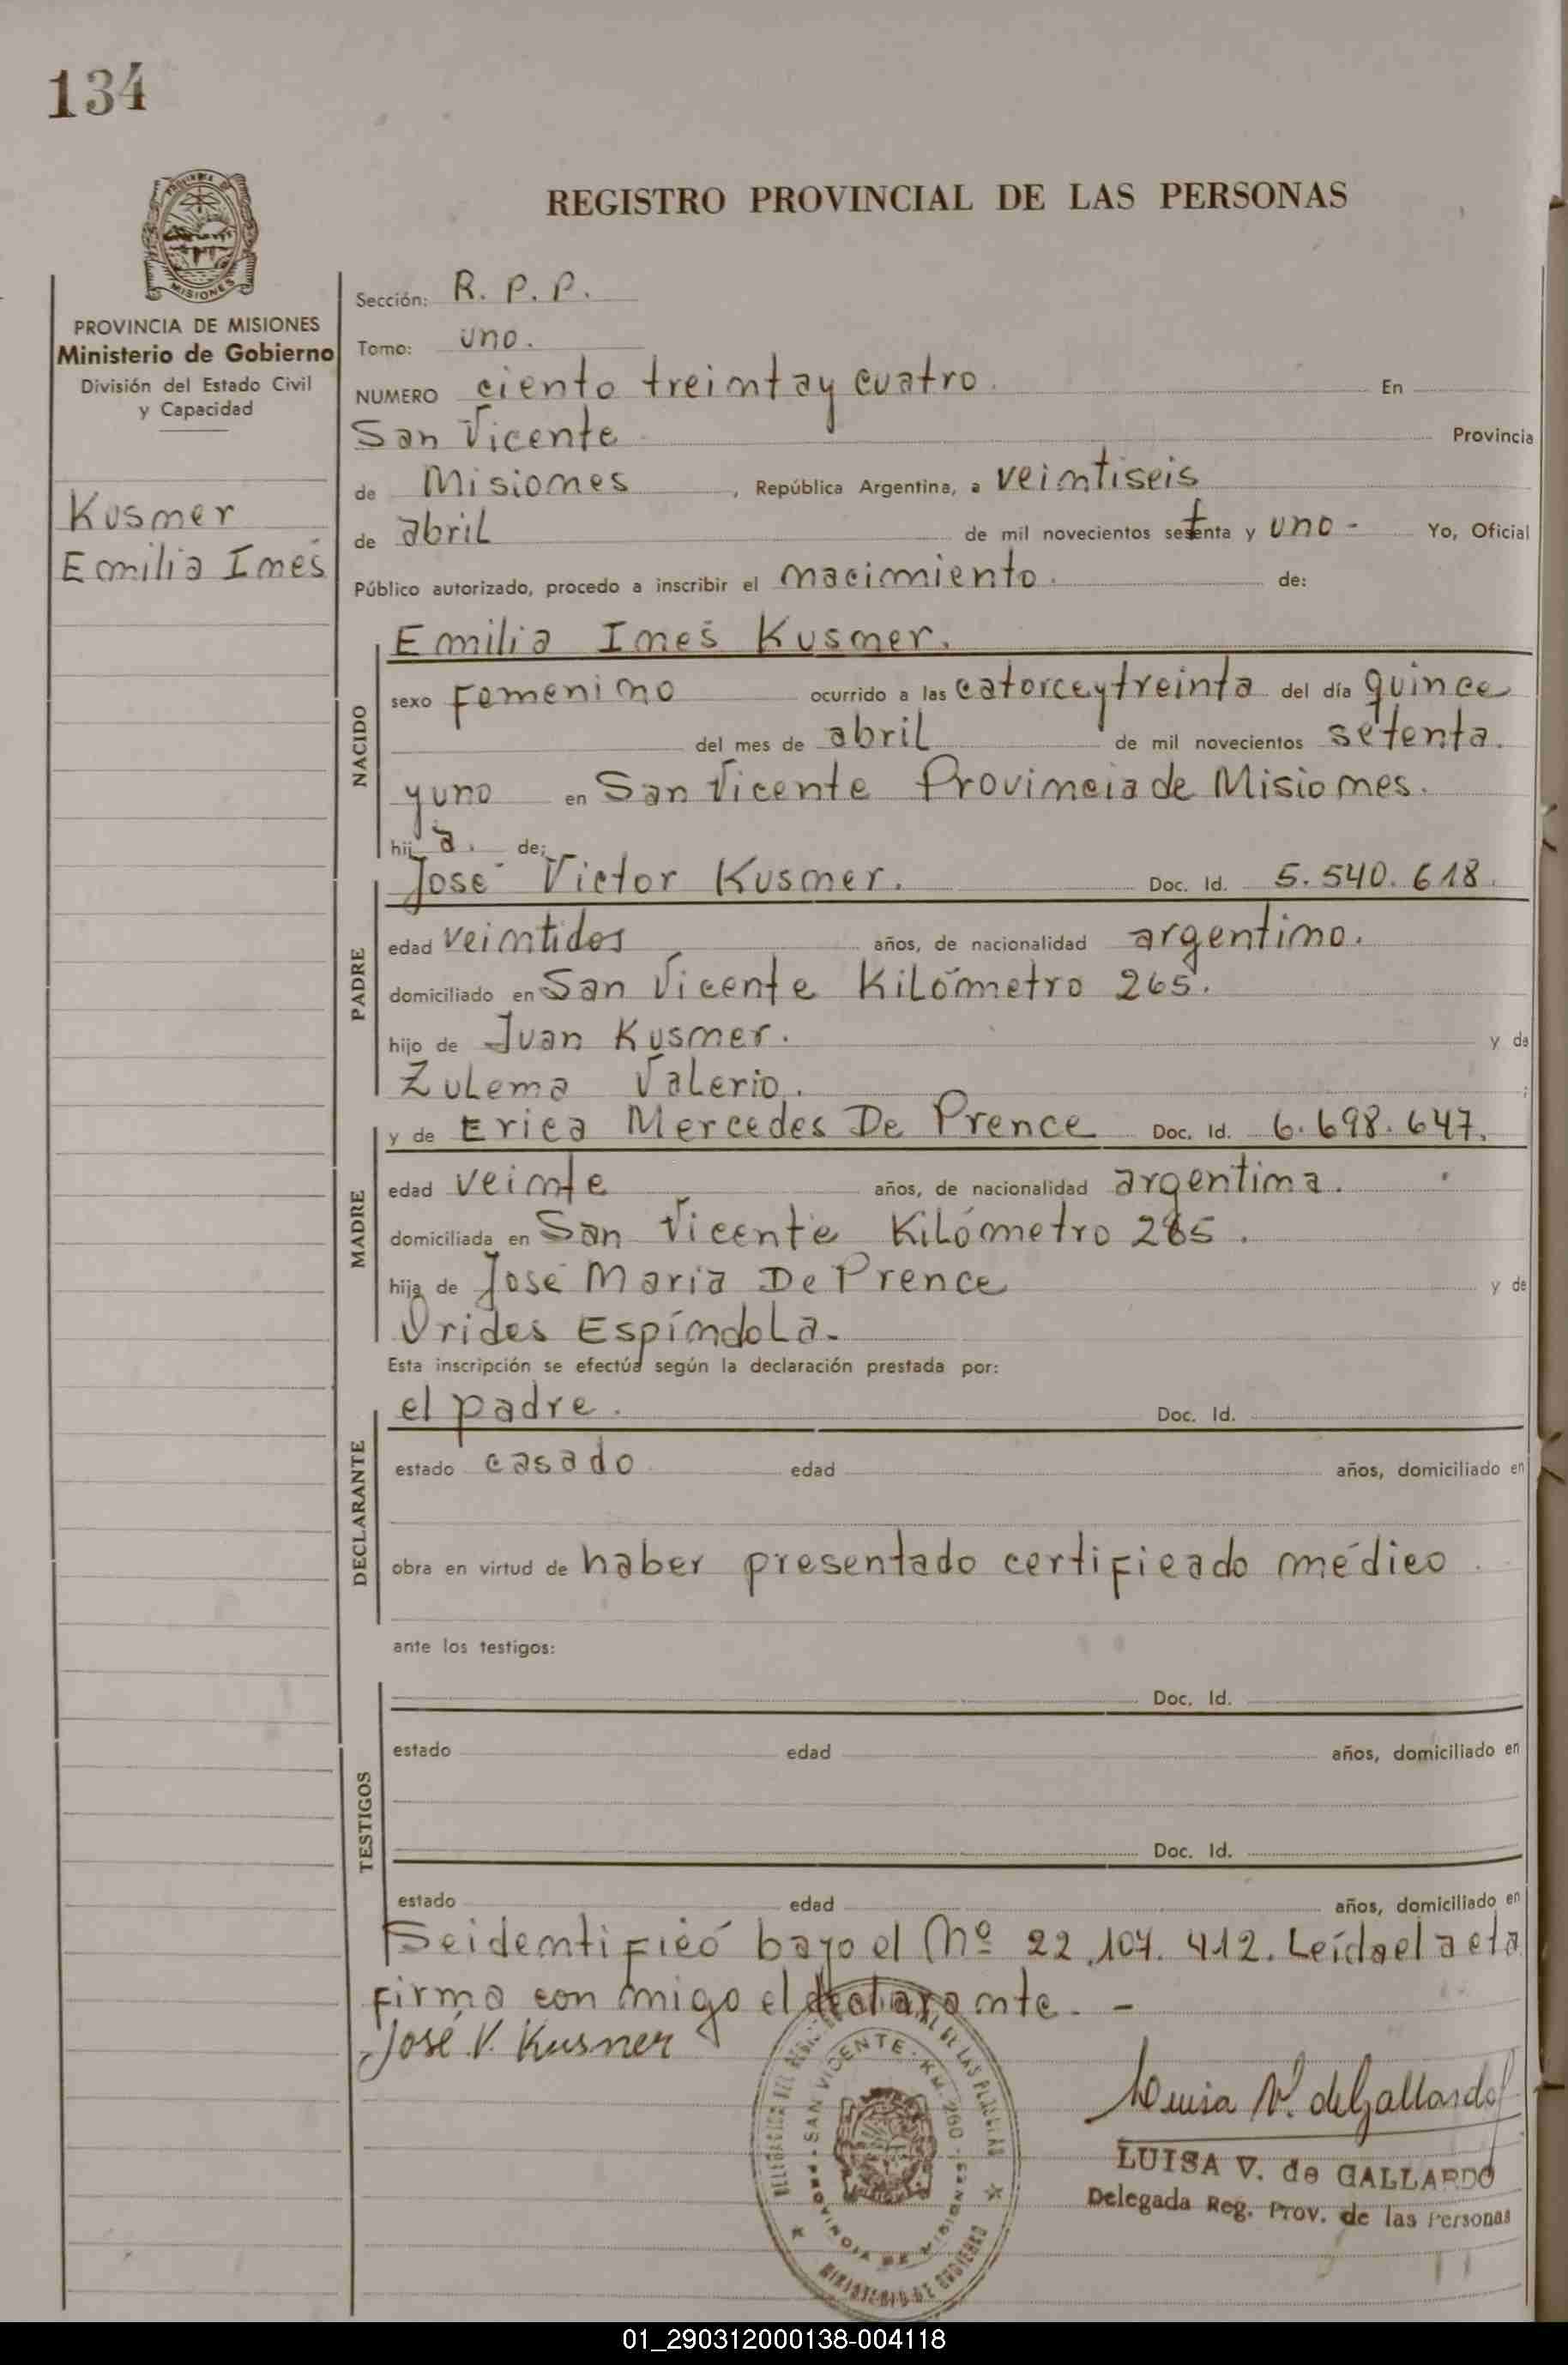 134
REGISTRO PROVINCIAL DE LAS PERSONAS
PROVINCIA DE MISIONES
Ministerio de Gobierno
División del Estado Civil
y Capacidad
Kusmer
Emilia Imés
Sección: R. P. P.
Tomo: uno.
NUMERO ciento treimtay cuatro. En
San Vicente Provincia
de Misiomes, República Argentina, a veimtiseis
de abril de mil novecientos setenta y uno - Yo, Oficial
Público autorizado, procedo a inscribir el macimiento. de:
NACIDO
Emilia Imés Kusmer.
sexo Femenimo ocurrido a las catorceytreinta del día quince
del mes de abril de mil novecientos setenta.
yuno en San Vicente Provimciade Misiomes.
hij a. de:
PADRE
José Victor Kusmer. Doc. Id. 5.540.618.
edad veimtidos años, de nacionalidad argentimo.
domiciliado en San Vicente Kilómetro 265.
hijo de Juan Kusmer. y de
Zulema Valerio.
MADRE
y de Erica Mercedes De Prence Doc. Id. 6.698.647.
edad veimte años, de nacionalidad argentima.
domiciliada en San Vicente Kilómetro 265.
hija de José Maria De Prence y de
Orides Espímdola.
Esta inscripción se efectúa según la declaración prestada por:
DECLARANTE
el padre. Doc. Id.
estado casado edad años, domiciliado en
obra en virtud de haber presentado certificado médico.
ante los testigos:
TESTIGOS
Doc. Id.
estado edad años, domiciliado en
Doc. Id.
estado edad años, domiciliado en
Seidemtificó bajo el Mº 22.107.412. Leídael acta
firma con migo el declaramte. -
José V. Kusner
SAN VICENTE - KM. 260 - PROVINCIA DE MISIONES
MINISTERIO DE GOBIERNO
Luisa V. de Gallardo
LUISA V. de GALLARDO
Delegada Reg. Prov. de las Personas
01_290312000138-004118